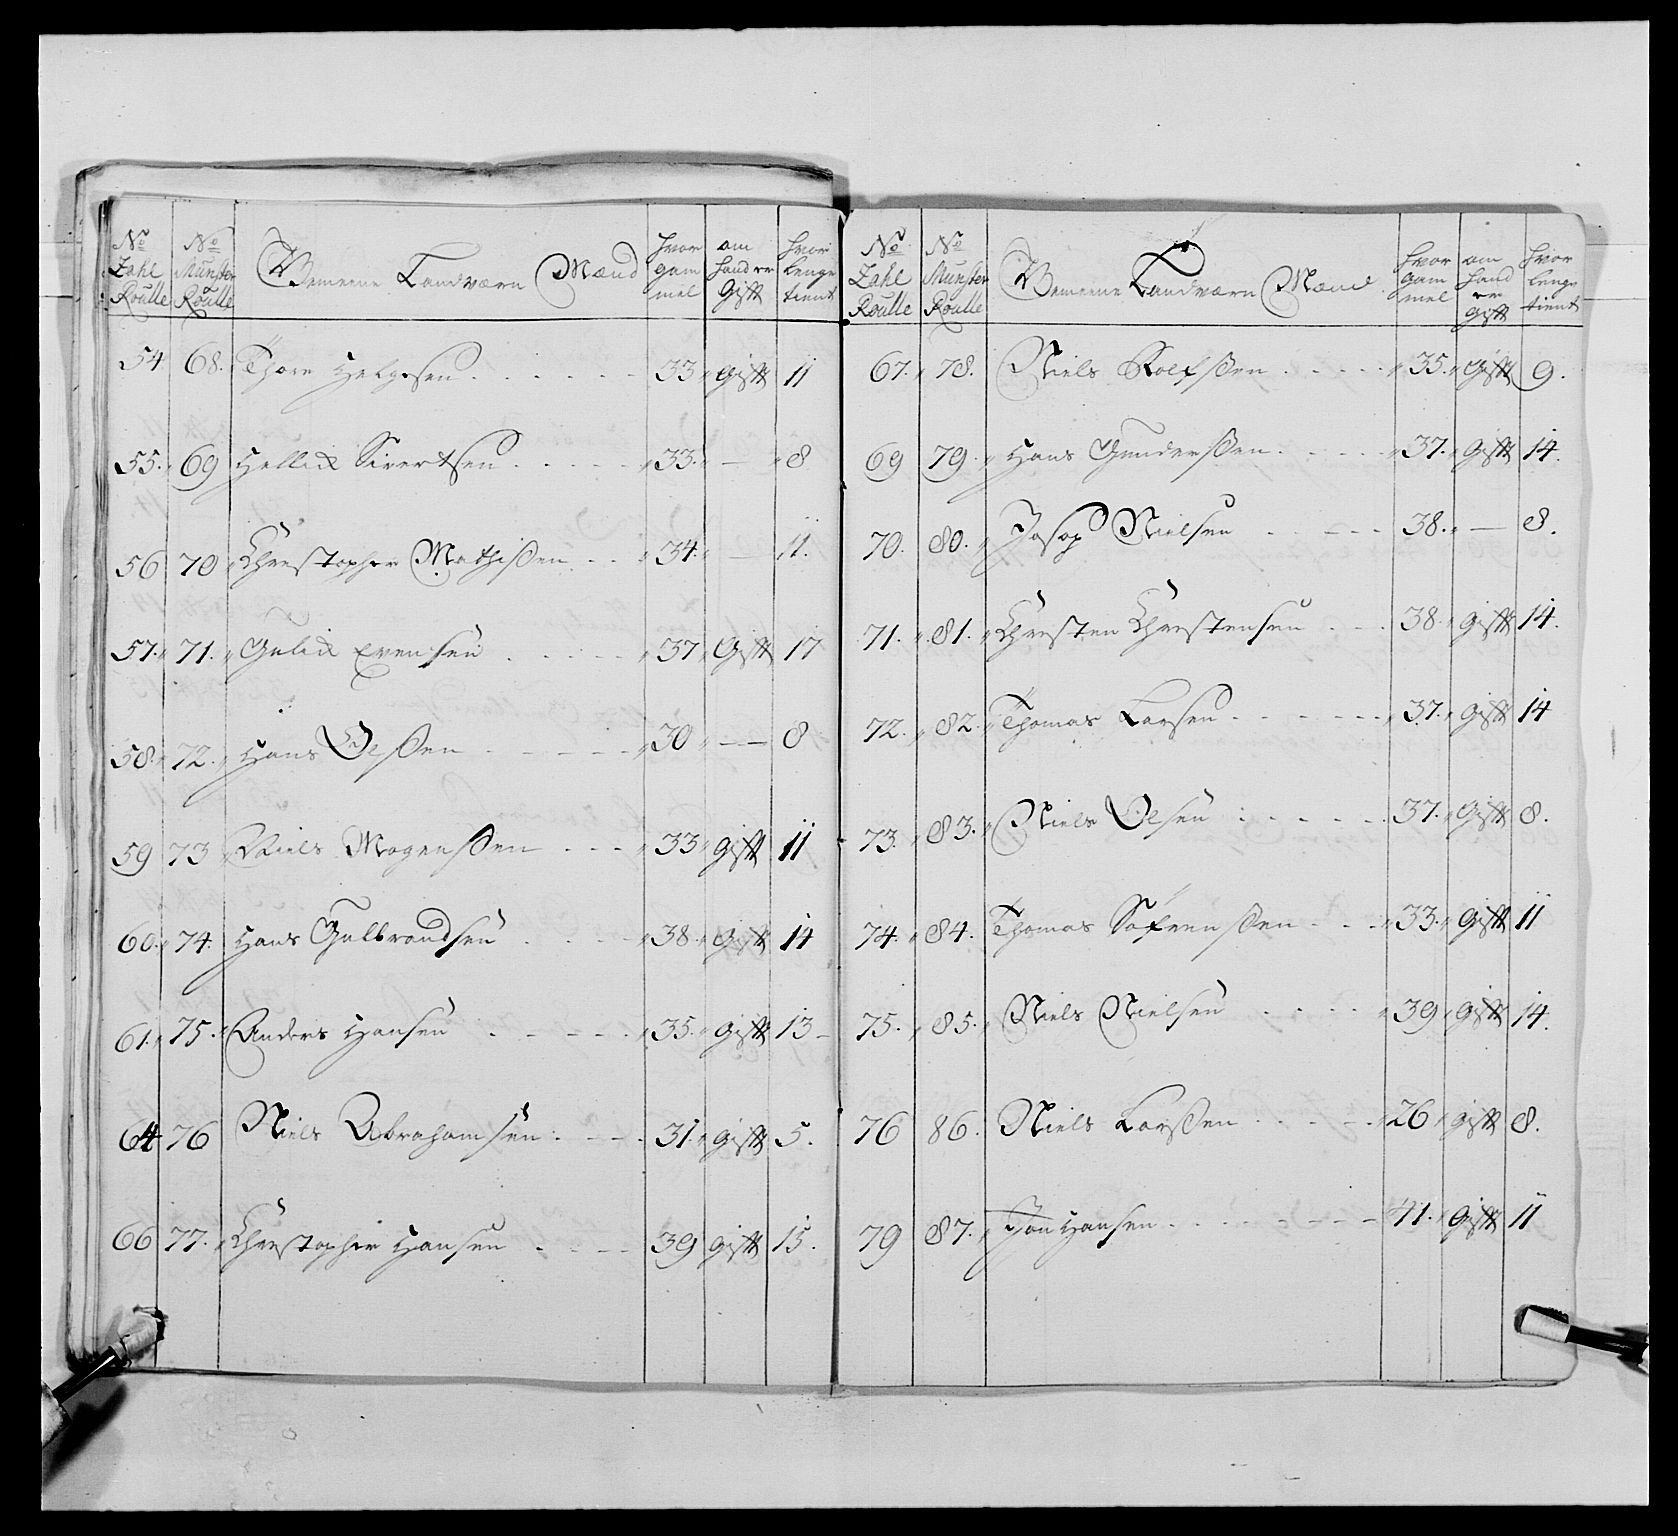 No Zahl Roulle | No Munster Roulle | Gemeene Landværn Mænd | hvor gam mel | om hand er Gift | hvor lenge tient
54 68. Thore Helgesen 33 gift 11
55. 69 Hellid Sivertsen 33. — 8
56 70 Christopher Mathissen 34. — 11.
57. 71. Gulid Evensen 37 Gift 17
58. 72. Hans Olssen 30 — 8
59 73 Niels Mogenssen 33 gift 11
60. 74. Hans Gulbrandsen 38. gift 14
61. 75. Anders Hansen 35. gift 13
64 76 Niels Abrahamsen 31. gift 5.
66 77. Christopher Hansen 39 gift 15.
No Zahl Roulle | No Munster Roulle | Gemeene Landværn Mænd | hvor gam mel | om hand er gift | hvor lenge tient
67. 78. Niels Rolfssen 35. gift 9.
69 79. Hans Gunderssen 37. gift 14.
70. 80. Josop Nielsen 38. — 8.
71. 81. Christen Christensen 38. gift 14.
72. 82. Thomas Larsen 37. gift 14
73. 83. Niels Olsen 37. Gift 8.
74. 84. Thomas Söfrenssen 33. gift 11
75. 85. Niels Nielsen 39 gift 14.
76 86. Niels Larssen 26 gift 8.
79 87. Jon Hansen 41. gift 11